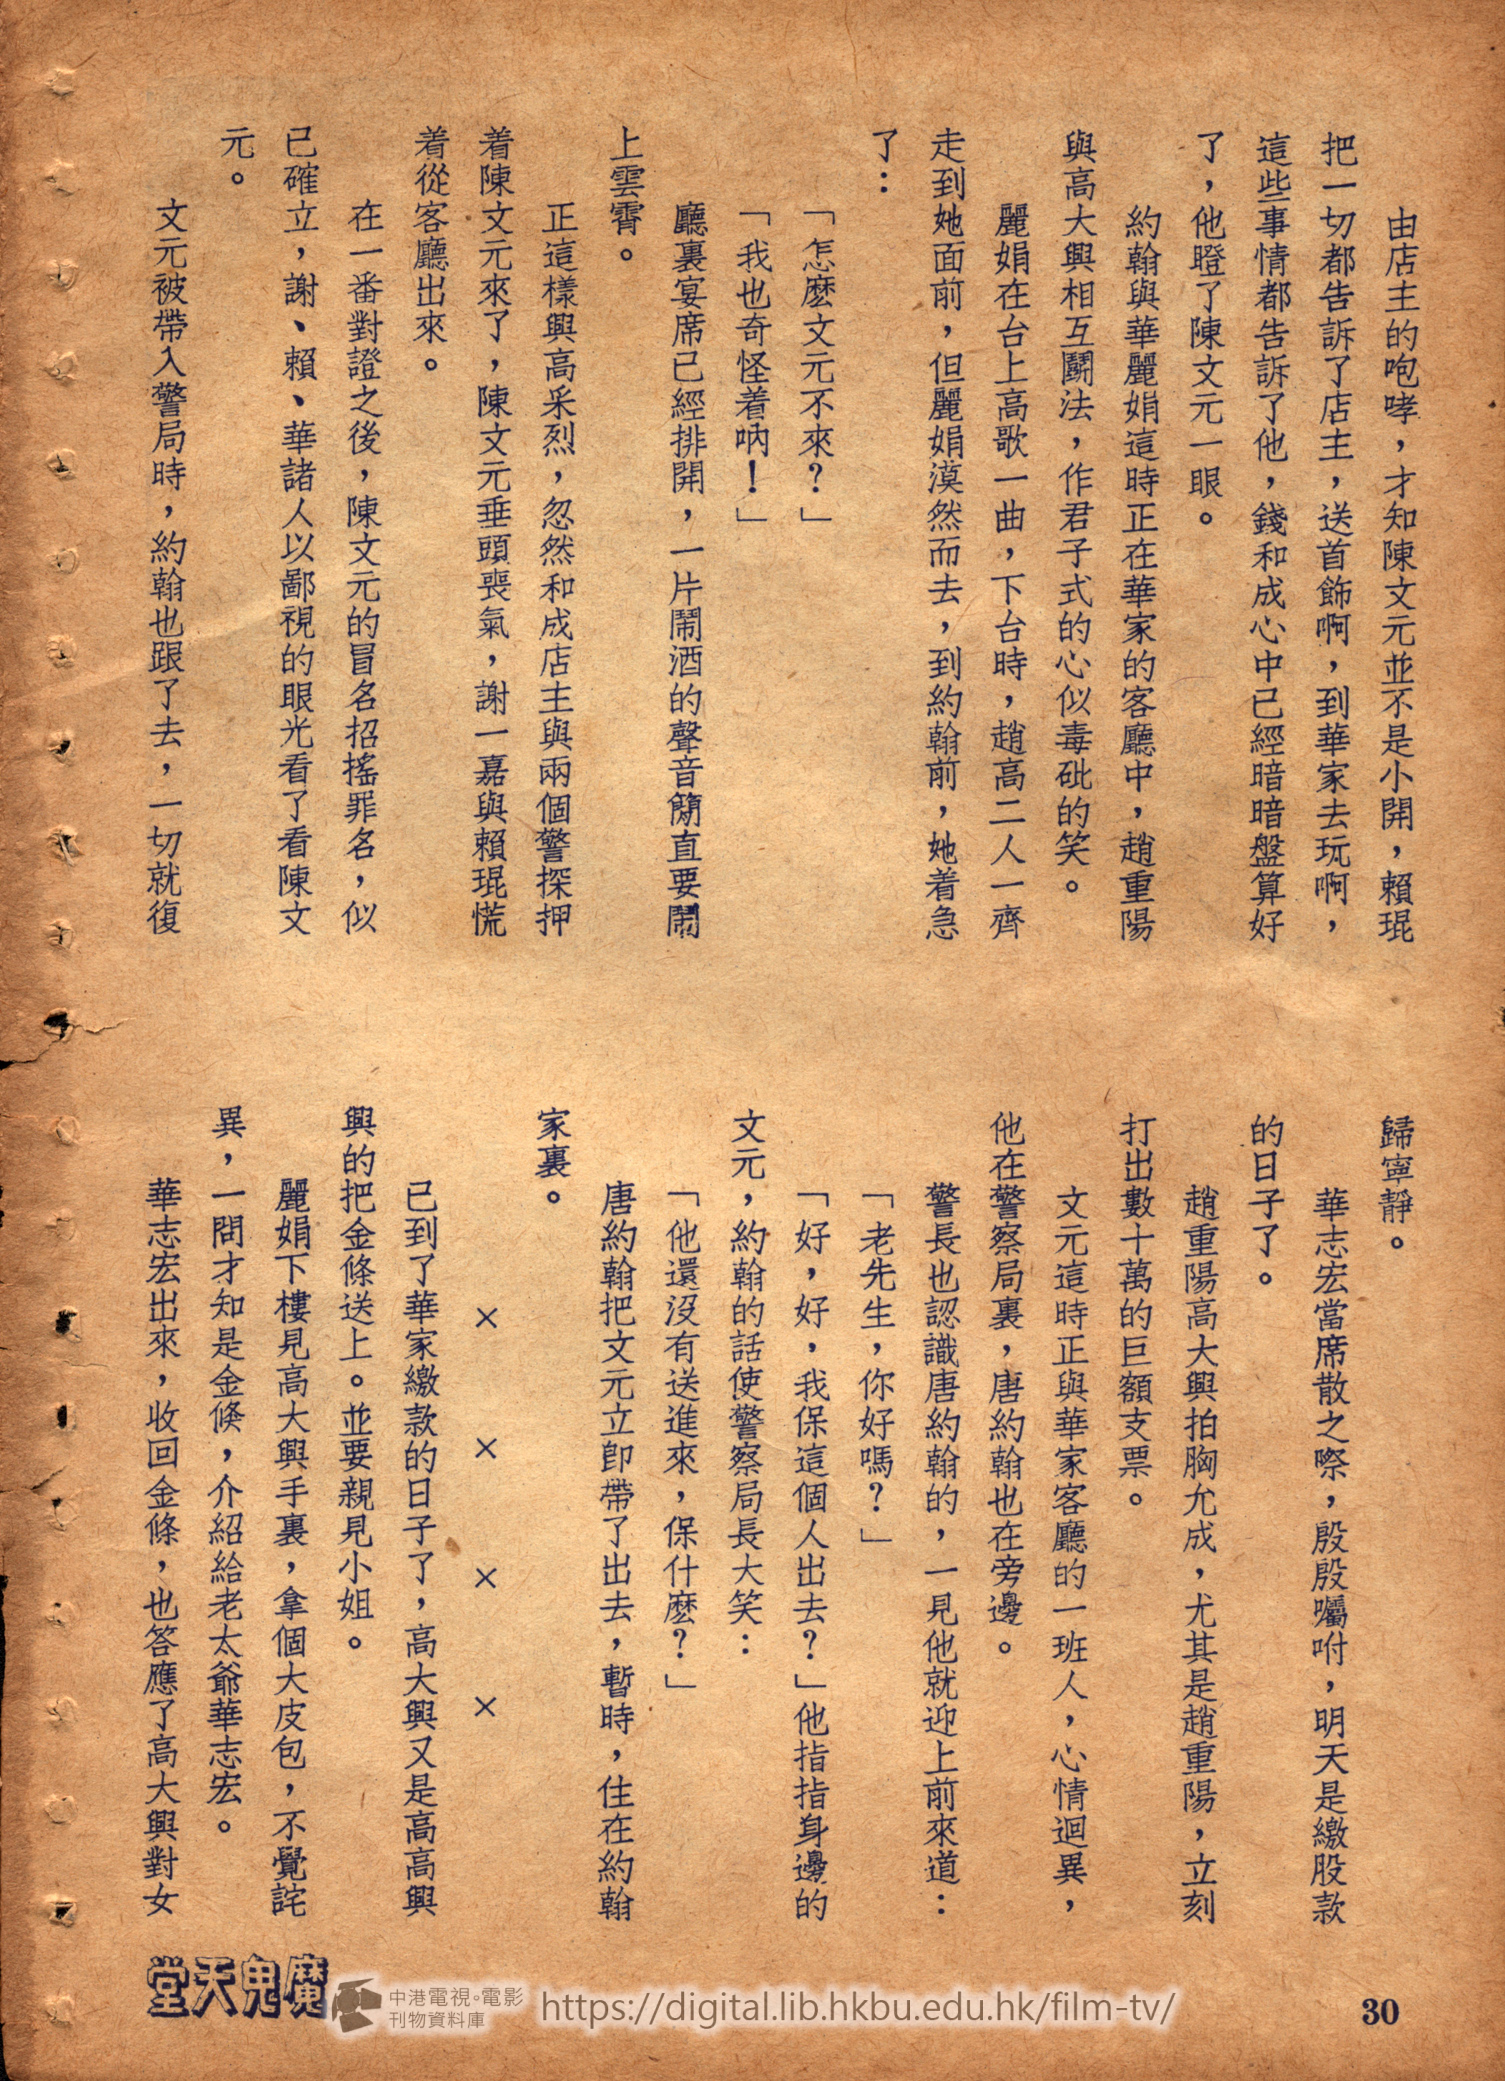 由店主的咆哮，才知陳文元並不是小開，賴琨
把一切都告訴了店主，送首飾啊，到華家去玩啊，
這些事情都告訴了他，錢和成心中已經暗暗盤算好
了，他瞪了陳文元一眼。
約翰與華麗娟這時正在華家的客廳中，趙重陽
與高大興相互鬭法，作君子式的心似毒砒的笑。
麗娟在台上高歌一曲，下台時，趙高二人一齊
走到她面前，但麗娟漠然而去，到約翰前，她着急
了：
「怎麽文元不來？」
「我也奇怪着吶！」
廳裏宴席已經排開，一片鬧酒的聲音簡直要鬧
上雲霄。
正這樣興高采烈，忽然和成店主與兩個警探押
着陳文元來了，陳文元垂頭喪氣，謝一嘉與賴琨慌
着從客廳出來。
在一番對證之後，陳文元的冒名招搖罪名，似
已確立，謝、賴、華諸人以鄙視的眼光看了看陳文
元。
文元被帶入警局時，約翰也跟了去，一切就復
歸寧靜。
華志宏當席散之際，殷殷囑咐，明天是繳股款
的日子了。
趙重陽高大興拍胸允成，尤其是趙重陽，立刻
打出數十萬的巨額支票。
文元這時正與華家客廳的一班人，心情迴異，
他在警察局裏，唐約翰也在旁邊。
警長也認識唐約翰的，一見他就迎上前來道：
「老先生，你好嗎？」
「好，好，我保這個人出去？」他指指身邊的
文元，約翰的話使警察局長大笑：
「他還沒有送進來，保什麽？」
唐約翰把文元立卽帶了出去，暫時，住在約翰
家裏。
× × × ×
已到了華家繳款的日子了，高大興又是高高興
興的把金條送上。並要親見小姐。
麗娟下樓見高大興手裏，拿個大皮包，不覺詫
異，一問才知是金條，介紹給老太爺華志宏。
華志宏出來，收回金條，也答應了高大興對女
魔鬼天堂
中港電視。電影
刊物資料庫
https://digital.lib.hkbu.edu.hk/film-tv/
30